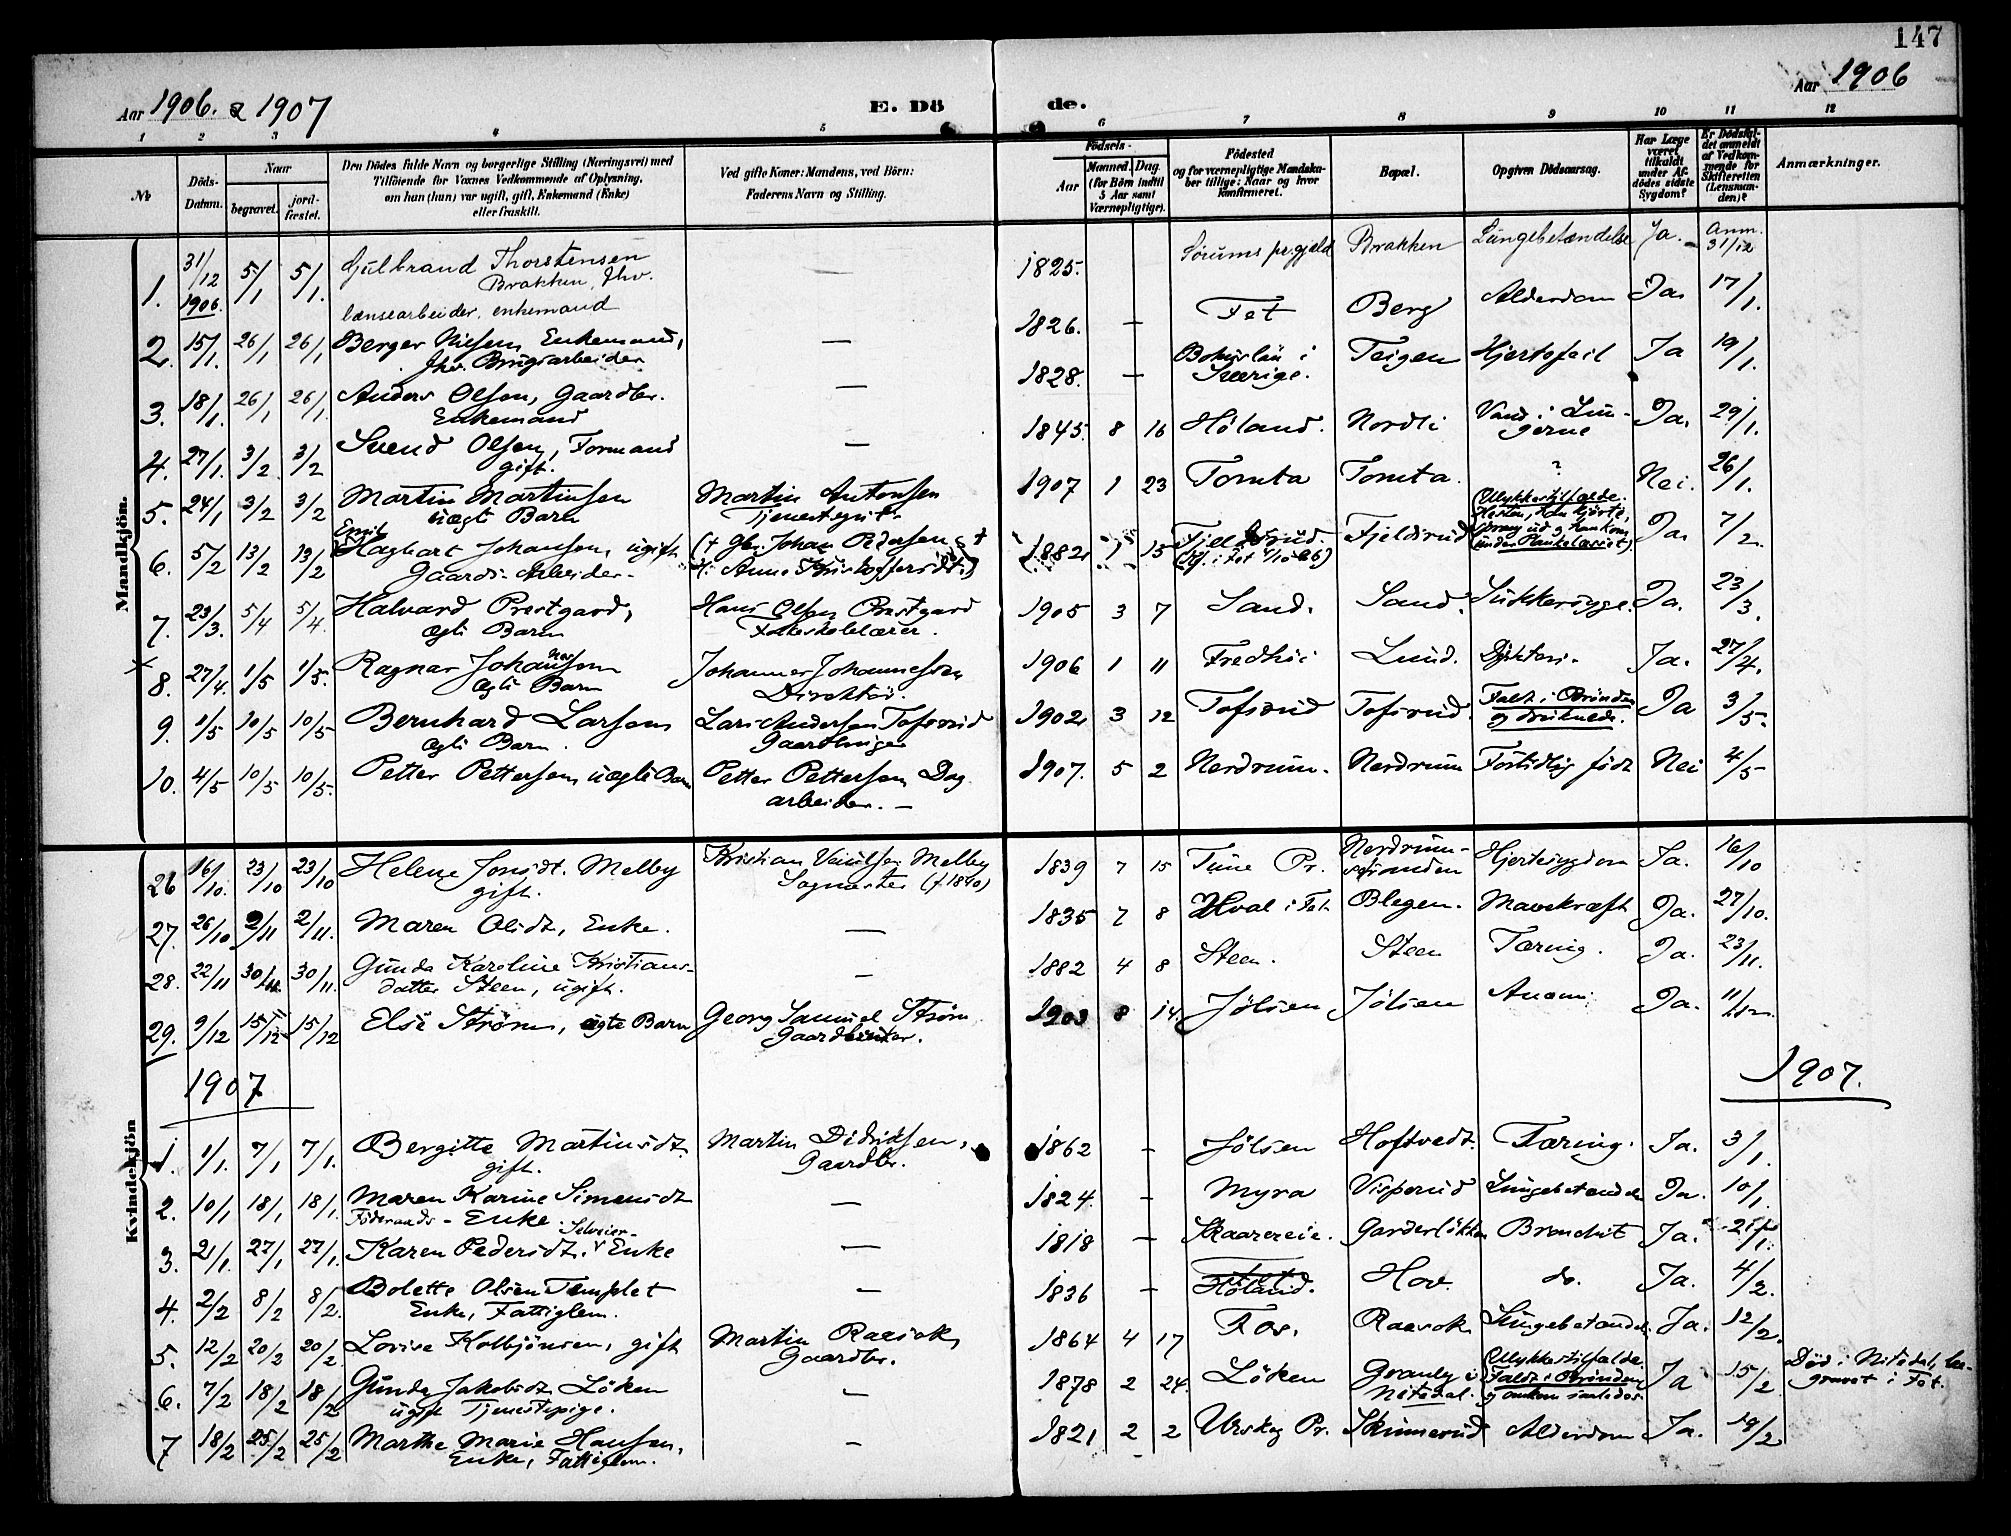 147
Aar 1906. & 1907
E. Dö
de.
Aar 1906
1 2 3 4 5 6 7 8 9 10 11 12
No
Döds-Datum.
Naar
begravet.
jord-fæstet.
Den Dödes fulde Navn og borgerlige Stilling (Næringsvei) med
Tilföiende for Voxnes Vedkommende af Oplysning,
om han (hun) var ugift, gift, Enkemand (Enke)
eller fraskilt.
Ved gifte Koner: Mandens, ved Börn:
Faderens Navn og Stilling.
Födsels-
Aar
Maaned. Dag.
(for Börn indtil
5 Aar samt
Værnepligtige).
Födested
og for værnepligtige Mandska-
ber tillige: Naar og hvor
konfirmeret.
Bopæl.
Opgiven Dödsaarsag.
Har Læge
været
tilkaldt
under Af-
dödes sidste
Sygdom?
Er Dödsfal-
det anmeldt
af Vedkom-
mende for
Skifteretten
(Lensman-
den)?
Anmærkninger.
Mandkjön.
1. 31/12 1906. 5/1 5/1. Gulbrand Thorstensen — 1825. Sörums pr.gjeld Brakken Lungebetændelse Ja. Anm. 31/12
Brakken, fhv.
lænsearbeider, enkemand
2. 15/1. 26/1 26/1. Berger Nilsen Enkemand, — 1826. — Fet Berg Alderdom Ja. 17/1.
fhv. Brugsarbeider
3. 18/1. 26/1 26/1. Anders Olsen, Gaardbr. — 1828. — Bohuslän i Teigen Hjertefeil Ja 19/1.
Enkemand Sverige.
4. 27/1. 3/2 3/2 Svend Olsen, Formand — 1845. 8 16 Höland. Nordli Vand i Lun- Ja. 29/1.
gift. gerne
5. 24/1 3/2 3/2 Martin Martinsen Martin Antonsen 1907 1 23 Tomta Tomta. ? Nei. 26/1.
uægte Barn Tjenestegut.
6. 5/2 13/2 13/2 Emil Hagbart Johansen, ugift 1882 1 15 Fjeldsrud. Fjeldsrud Ulykkestilfælde. Ja. 7/2.
Gaards-Arbeider.
7. 23/3. 5/4 5/4. Halvard Prestgard, Hans Olsen Prestgard 1905 3 7 Sand. Sand. Sukkersyge. Ja. 23/3.
ægte Barn Folkeskolelærer.
8. 27/4. 1/5 1/5. Ragnar Johannessen Johannes Johannessen 1906 1 11 Fredhöi Lund. Difteri. Ja. 27/4.
ægte Barn Direktör.
9. 1/5 10/5 10/5 Bernhard Larsen Lars Andersen Tofsrud 1902 3 12 Tofsrud Tofsrud. Faldt i Brönden Ja 3/5.
ægte Barn. og druknede.
10. 4/5 10/5 10/5. Petter Pettersen, uægte Barn Petter Pettersen Dag 1907. 5 2 Nerdrum. Nerdrum Fortidlig födt Nei 4/5
arbeider. —
Kvindekjön
26 16/10. 23/10 23/10 Helene Jonsdt. Melby Melby 1839 7 15 Tune Pr. Nerdrum-stranden Hjertesygdom Ja. 16/10
gift. (f. 1840)
27. 26/10 2/11 2/11. Maren Olsdt, Enke. — 1835 7 8 Hval i Fet Blegen. Mavekræft Ja. 27/10.
28. 22/11 30/11 30/11. Gunda Karoline Kristians- — 1882 4 8 Steen. Steen Tæring. Ja. 23/11.
datter Steen, ugift.
29. 9/12 15/12 15/12 Else Ström, ægte Barn Georg Samuel Ström 1903 8 14. Jölsen Jölsen Anæmi Ja. 11/12.
1907
1907.
1. 1/1. 7/1 7/1. Bergitte Martinsdt. Martin Didriksen, 1862 — Jölsen Hoftvedt. Tæring. Ja. 3/1.
gift. Gaardbr.
2. 10/1 18/1 18/1. Maren Karine Simensdt — 1824. — Myra Lungebetændelse Ja. 10/1.
Föderaads-Enke.
3. 21/1. 27/1 27/1. Karen Pedersdt. Selveier-Enke — 1818 — Skaareeie. Garderlökken Bronchit Ja.
4. 2/2 8/2 8/2. Bolette Olsen Templet — 1836 — Höland. Hov. do. Ja. 4/2.
Enke, Fattiglem.
5. 12/2 20/2 20/2 Lovise Kolbjönsen, gift Martin Raasok, 1864 4 17 Fos. Raasok Lungebetændelse Ja. 12/2.
Gaardbr.
6. 7/2 18/2 18/2 Gunda Jakobsdt Löken — 1878 2 24. Löken Granly i Ulykkestilfælde. Ja 15/2 Död i Nitedal, be-
ugift Tjenestepige. Nitedal. Faldt i Brönden gravet i Fet.
og omkom saaledes.
7 18/2 25/2 25/2 Marthe Marie Hansen, — 1821 2 2 Urskog Pr. Skinnerud Alderdom Ja. 19/2
Enke, Fattiglem.